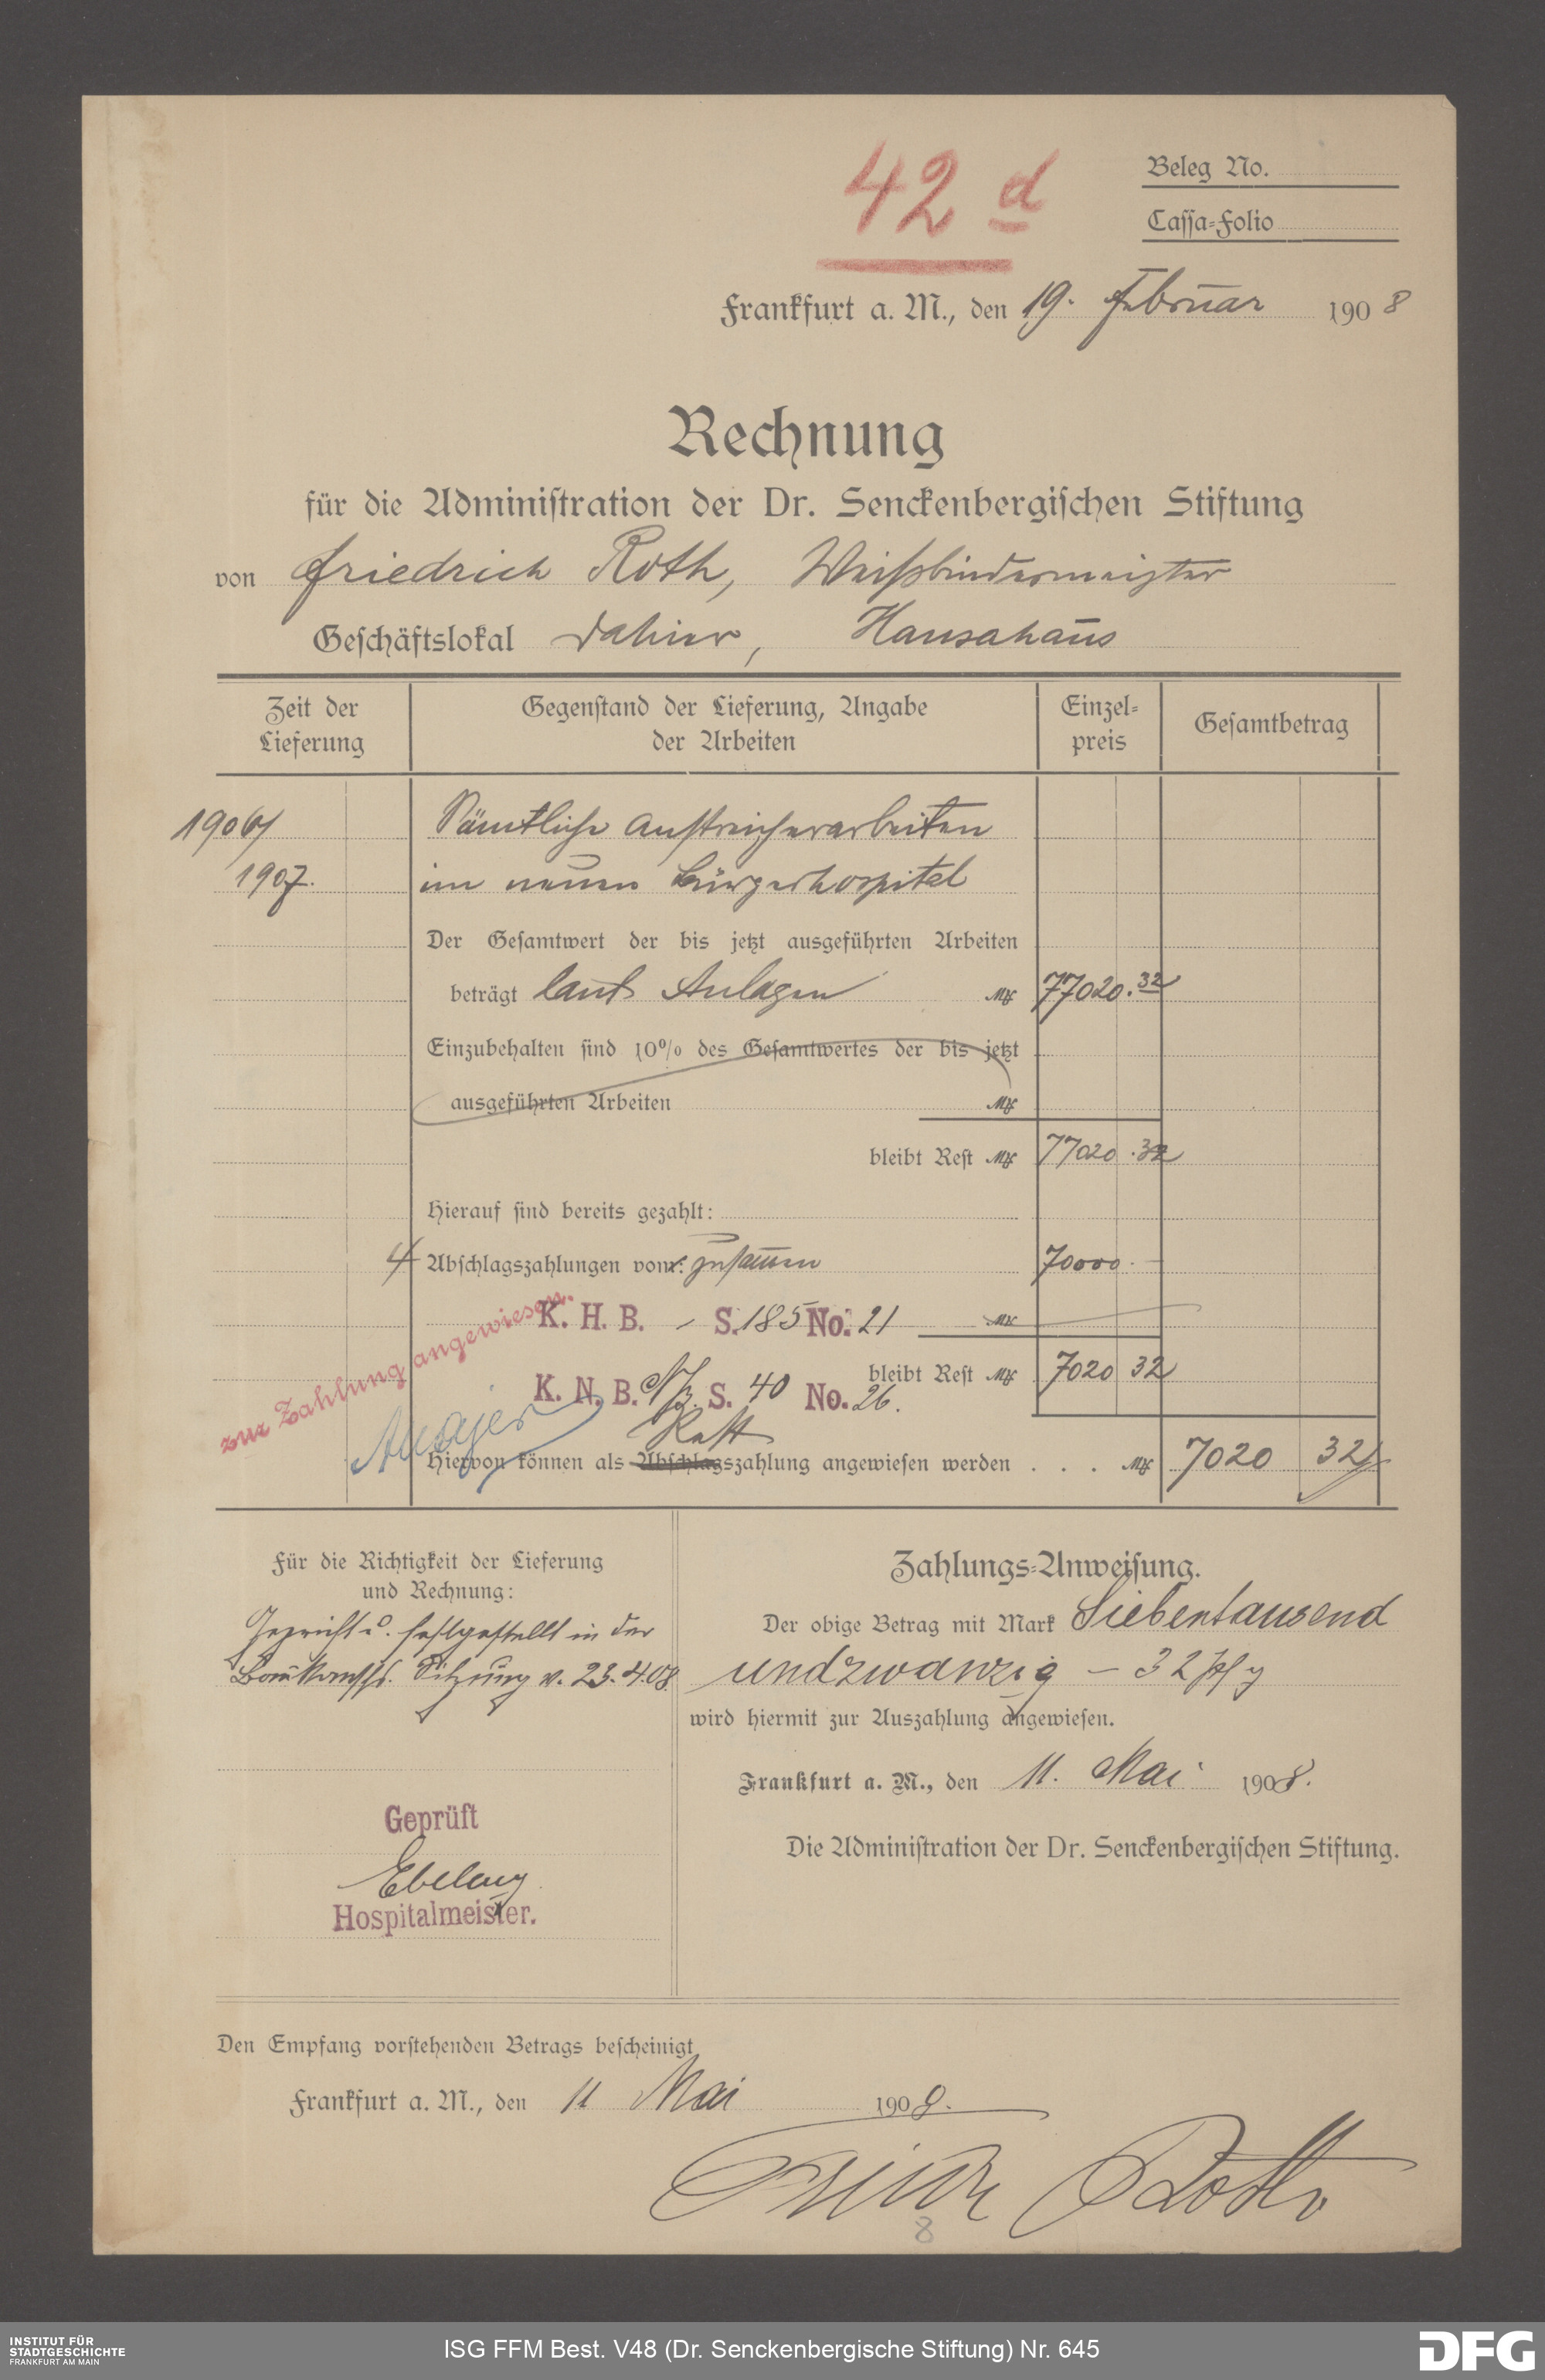 42 d
Beleg No.
Cassa-Folio
Frankfurt a. M., den 19. Februar 1908
Rechnung
für die Administration der Dr. Senckenbergischen Stiftung
von Friedrich Roth, Weißbindermeister
Geschäftslokal dahier, Hansahaus
Zeit der Lieferung
Gegenstand der Lieferung, Angabe der Arbeiten
Einzel-preis
Gesamtbetrag
1906/ Sämtliche Anstreicherarbeiten
1907. im neuen Bürgerhospital
Der Gesamtwert der bis jetzt ausgeführten Arbeiten
beträgt laut Anlagen Mk 77020.32
Einzubehalten sind 10% des Gesamtwertes der bis jetzt
ausgeführten Arbeiten Mk
bleibt Rest Mk 77020.32
Hierauf sind bereits gezahlt:
4 Abschlagszahlungen vom: zusammen 70000.-
K. H. B. - S. 185 No. 21 Mk
zur Zahlung angewiesen.
bleibt Rest Mk 7020 32
K. N. B. S. 40 No. 26.
Rest
Hiervon können als Abschlagszahlung angewiesen werden . . . Mk 7020 32
Für die Richtigkeit der Lieferung
und Rechnung:
Geprüft u. festgestellt in der
Baukommss. Sitzung v. 23.4.08
Geprüft
Hospitalmeister.
Zahlungs-Anweisung.
Der obige Betrag mit Mark Siebentausend
undzwanzig – 32 Pfg
wird hiermit zur Auszahlung angewiesen.
Frankfurt a. M., den 11. Mai 1908.
Die Administration der Dr. Senckenbergischen Stiftung.
Den Empfang vorstehenden Betrags bescheinigt
Frankfurt a. M., den 11 Mai 1908.
Friedr Roth
8
INSTITUT FÜR
STADTGESCHICHTE
FRANKFURT AM MAIN
ISG FFM Best. V48 (Dr. Senckenbergische Stiftung) Nr. 645
DFG